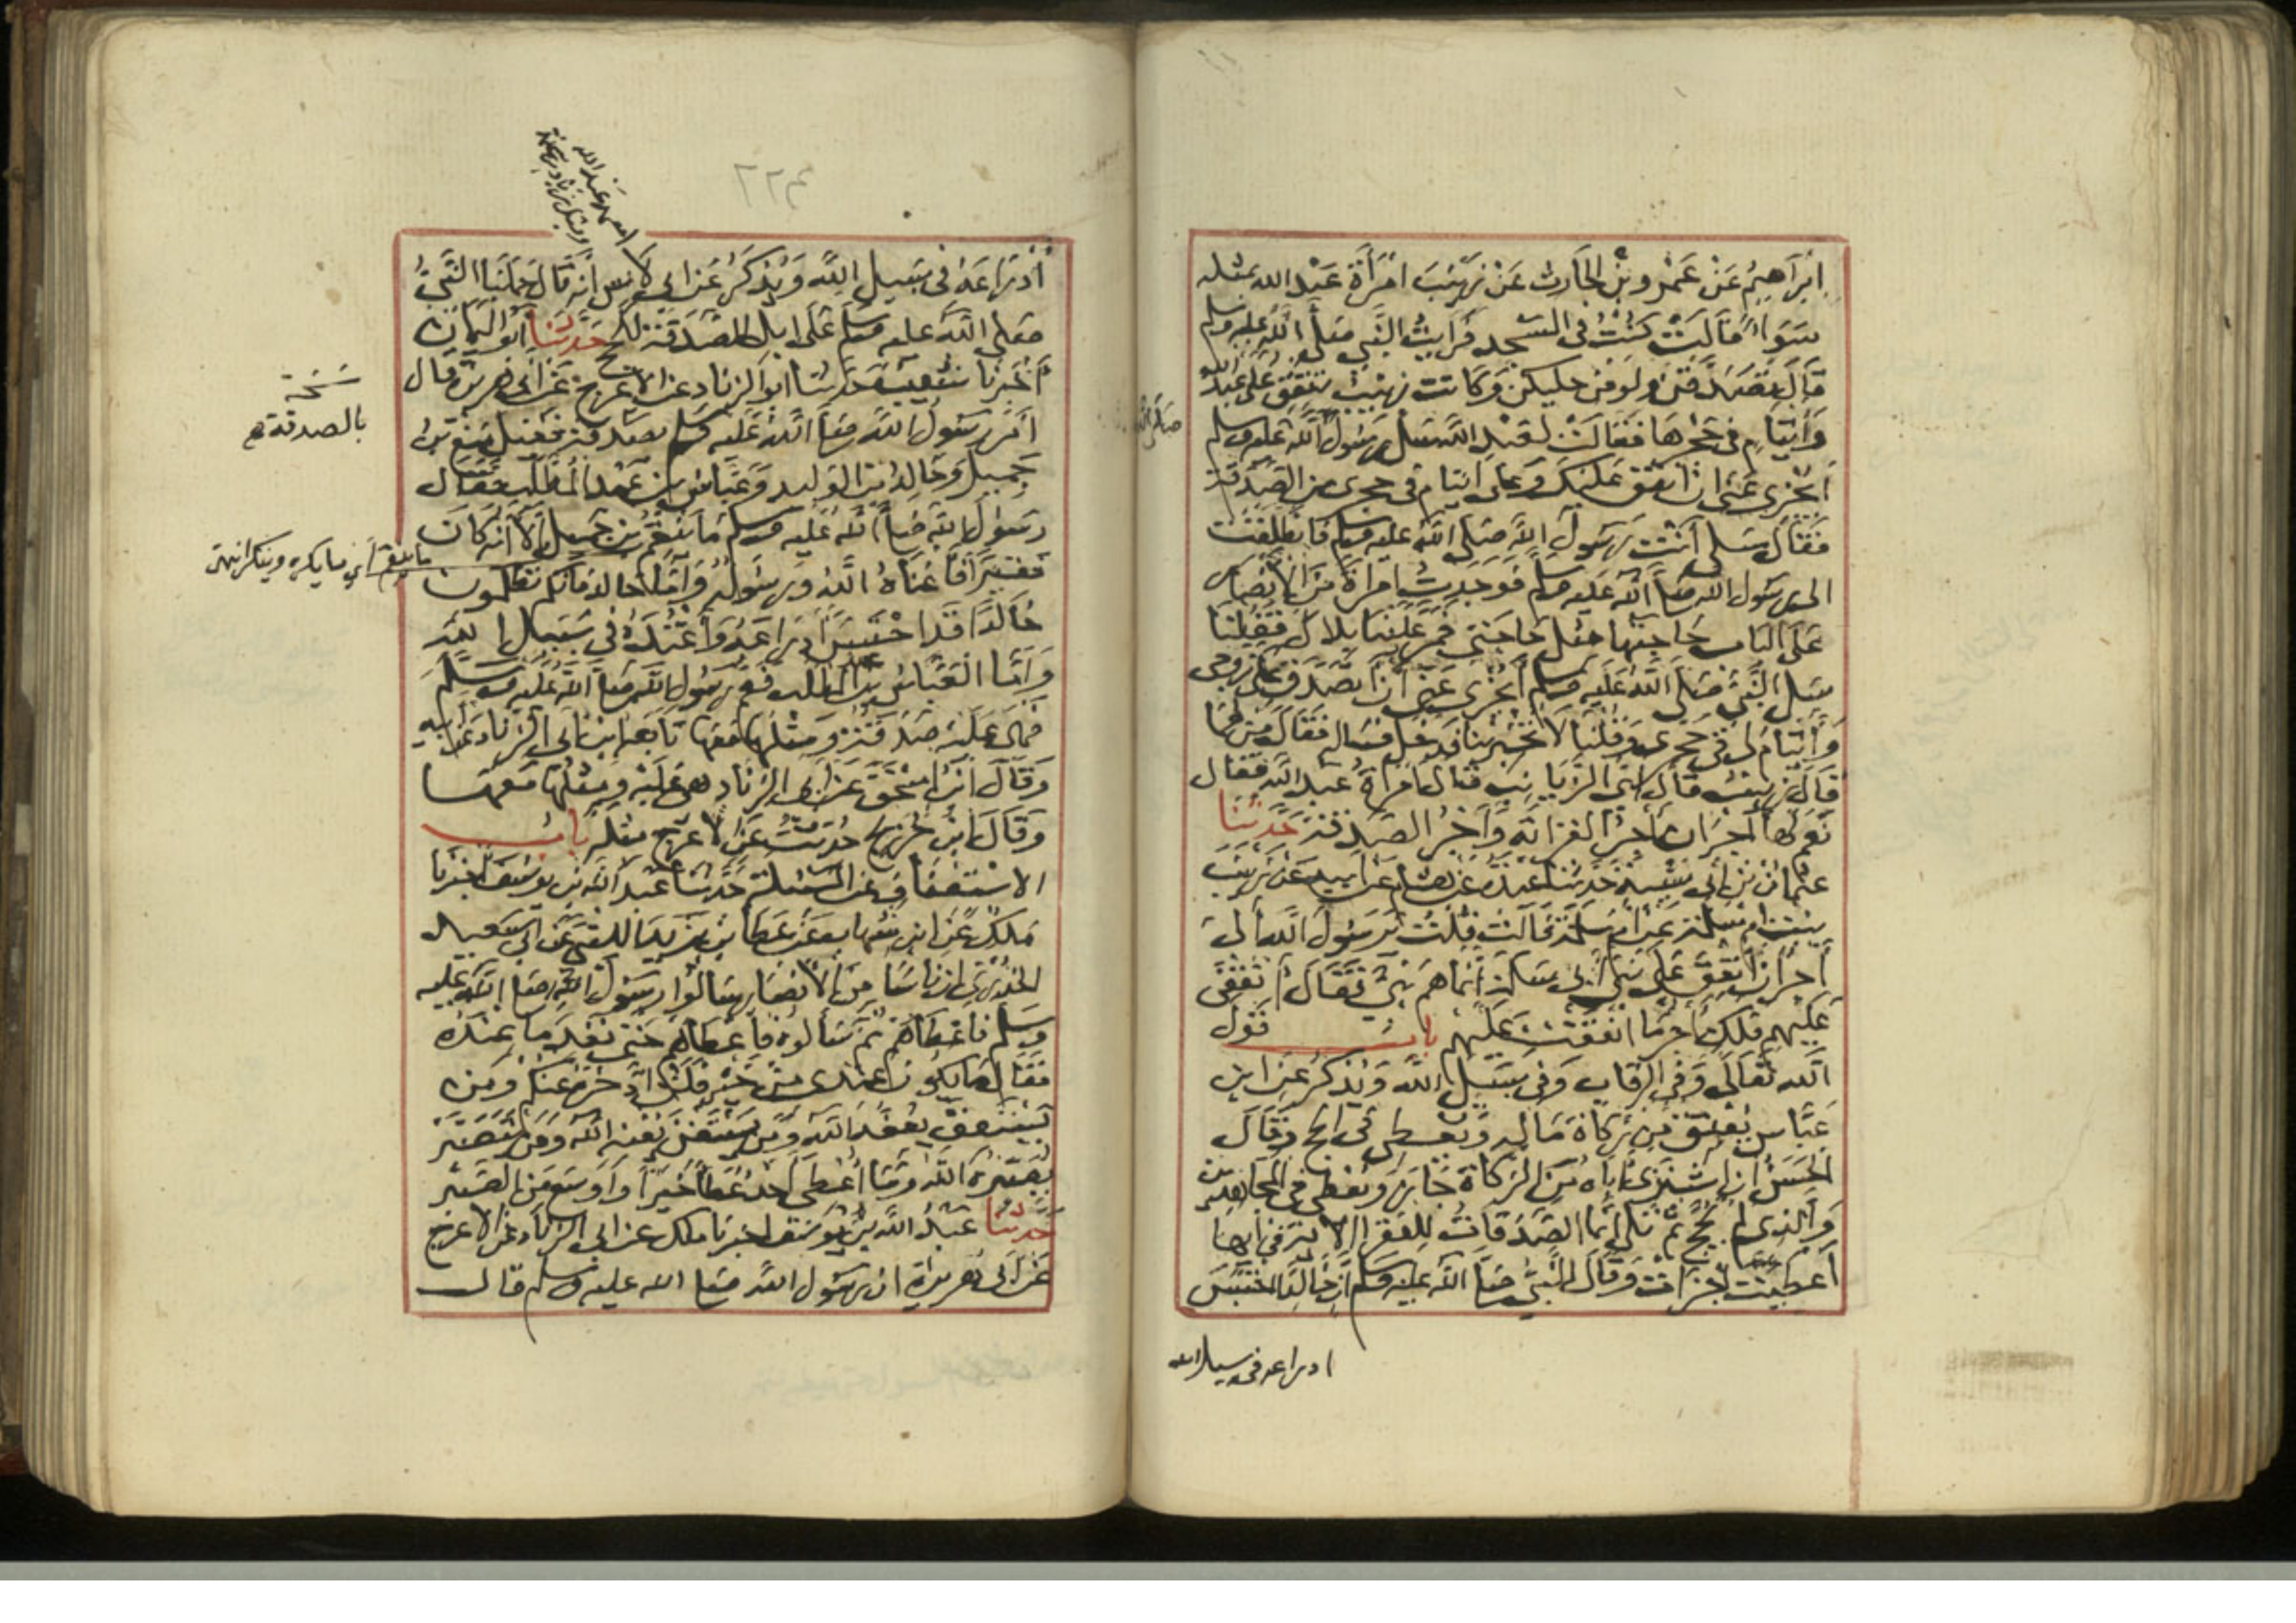 ابراهيم عن عمرو بن الحارث عن زينب امرأة عبد الله بمثله
سواء قالت كنت في المسجد فرايت النبي صلى الله عليه وسلم
قال تصدقن ولو من حليكن وكانت زينب تنفق على عبد الله
وأيتام في حجرها فقالت لعبد الله سل رسول الله صلى الله عليه وسلم
أيجزي عني ان انفق عليك وعلى ايتام في حجري من الصدقة
فقال سلي أنت رسول الله صلى الله عليه وسلم فانطلقت
الى رسول الله صلى الله عليه وسلم فوجدت امرأة من الأنصار
على الباب حاجتها مثل حاجتي فمر علينا بلال فقلنا
سل النبي صلى الله عليه وسلم أيجزي عني أن اتصدق على زوجي
وأيتام لي في حجري وقلنا لا تخبر بنا فدخل فساله فقال من هما
قال زينب قال اي الزيانب قال امرأة عبد الله فقال
نعم لها أجران أجر القرابة وأجر الصدقة حدثنا
عثمان بن أبي شيبة حدثنا عبدة عن هشام عن ابيه عن زينب
بنت ام سلمة عن أم سلمة قالت قلت يا رسول الله ألي
أجر ان أنفق على بني أبي سلمة إنما هم بني فقال أنفقي
عليهم فلك أجر ما انفقت عليهم باب قول
الله تعالى وفي الرقاب وفي سبيل الله ويذكر عن ابن
عباس يعتق من زكاة ماله ويعطي في الحج وقال
الحسن ان اشترى اباه من الزكاة جاز ويعطي في المجاهدين
والذي لم يحج ثم تلى إنما الصدقات للفقراء الآية في أيها
أعطيت أجزأت وقال النبي صلى الله عليه وسلم إن خالدا احتبس
ادراعه في سبيل الله
أدراعه في سبيل الله ويذكر عن ابي لاس انه قال حملنا النبي
صلى الله عليه وسلم على ابل الصدقة للحج حدثنا أبو اليمان
أخبرنا شعيب حدثنا ابو الزناد عن الاعرج عن أبي هريرة قال
امر رسول الله صلى الله عليه وسلم بصدقة فقيل منع ابن
جميل وخالد بن الوليد وعباس بن عبد المطلب فقال
رسول الله صلى الله عليه وسلم ما ينقم بن جميل إلا أنه كان
فقيرا فاغناه الله ورسوله وأما خالد فانكم تظلمون
خالدا قد احتبس أدراعه وأعتده في سبيل الله
وأما العباس بن عبد المطلب فعم رسول الله صلى الله عليه وسلم
فهي عليه صدقة ومثلها معها تابعه ابن أبي الزناد عن أبيه
وقال ابن إسحق عن أبي الزناد هي عليه ومثلها معها
وقال ابن جريج حدثت عن الاعرج مثله باب
الاستعفاف عن المسئلة حدثنا عبد الله بن يوسف أخبرنا
ملك عن ابن شهاب عن عطاء بن يزيد الليثي عن ابي سعيد
الخدري ان ناسا من الأنصار سالوا رسول الله صلى الله عليه
وسلم فاعطاهم ثم سألوه فاعطاهم حتى نفد ما عنده
فقال ما يكون عندي من خير فلن ادخره عنكم ومن
يستعفف يعفه الله ومن يستغن يغنه الله ومن يتصبر
يصبره الله وما أعطي أحد عطاء خيرا وأوسع من الصبر
حدثنا عبد الله بن يوسف اخبرنا ملك عن ابي الزناد عن الاعرج
عن ابي هريرة ان رسول الله صلى الله عليه وسلم قال
نسخة
بالصدقة
ما ينقم أي ما يكره وينكر